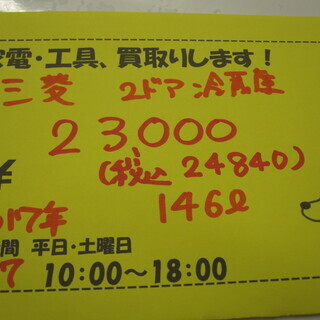 家電・工具、買取りします！
三菱 2ドア冷蔵庫
23,000
¥ (税込 24840)
017年 146ℓ
間 平日・土曜日
7 10:00～18:00